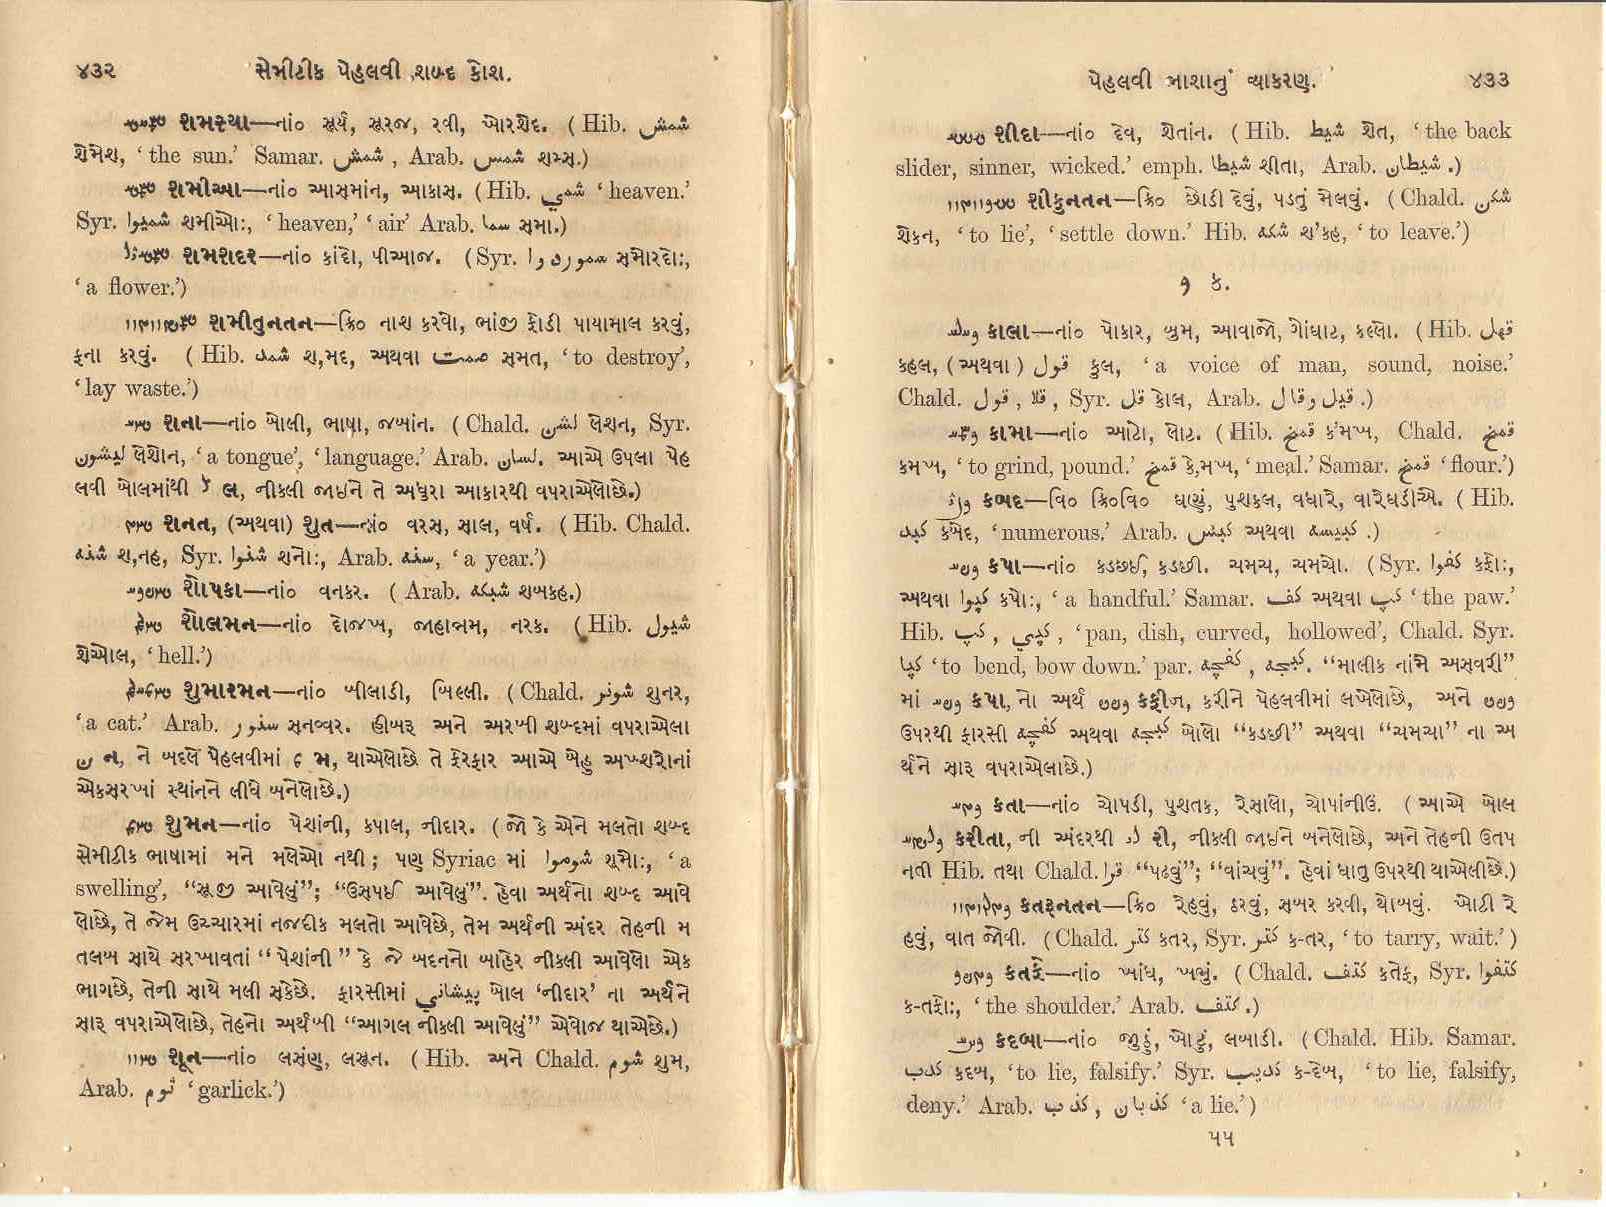 ૪૩૨ સેમીટીક પેહલવી શબ્દ કોશ.
શમસ્યા—નાં૦ સૂર્ય, સૂરજ, રવી, ખોરશેદ. (Hib. شمش
શેમેશ, ‘the sun.’ Samar. شمش, Arab. شمس શમ્સ.)
શમીઆ—નાં૦ આસમાંન, આકાસ. (Hib. شمي ‘heaven.’
Syr. شميوا શમીઓ:, ‘heaven,’ ‘air’ Arab. سما સમા.)
શમશદર—નાં૦ કાંદો, પીઆજ. (Syr. સમોરદો:,
‘a flower.’)
શમીતુનતન—ક્રિ૦ નાશ કરવો, ભાંજી ફોડી પાયામાલ કરવું,
ફના કરવું. (Hib. شمد શ,મદ, અથવા صمت સમત, ‘to destroy’,
‘lay waste.’)
શના—નાં૦ બોલી, ભાષા, જબાંન. (Chald. لشن લેશન, Syr.
ليشون લેશોન, ‘a tongue’, ‘language.’ Arab. لسان. આએ ઉપલા પેહ
લવી બોલમાંથી લ, નીકલી જાઇને તે અધુરા આકારથી વપરાએલોછે.)
શનત, (અથવા) શુત—નાં૦ વરસ, સાલ, વર્ષ. (Hib. Chald.
શ,નહ, Syr. شنوا શનો:, Arab. سنه, ‘a year.’)
શોપકા—નાં૦ વનકર. (Arab. شبكه શબકહ.)
શોલમન—નાં૦ દોજખ, જાહાન્નમ, નરક. (Hib. شيول
શેઓલ, ‘hell.’)
શુમારમન—નાં૦ બીલાડી, બિલ્લી. (Chald. شونر શુનર,
‘a cat.’ Arab. سنور સનવ્વર. હીબરૂ અને અરબી શબ્દમાં વપરાએલા
ن ન, ને બદલે પેહલવીમાં મ, થાએલોછે તે ફેરફાર આએ બેહુ અખ્શરોનાં
એકસરખાં સ્થાંનને લીધે બનેલોછે.)
શુમન—નાં૦ પેશાંની, કપાલ, નીદાર. (જો કે એને મલતો શબ્દ
સેમીટીક ભાષામાં મને મલેઓ નથી; પણ Syriac માં شوموا શૂમો:, ‘a
swelling’, “સૂજી આવેલું”; “ઉસપઈ આવેલું”. હેવા અર્થનો શબ્દ આવે
લોછે, તે જેમ ઉચ્ચારમાં નજદીક મલતો આવેછે, તેમ અર્થની અંદર તેહની મ
તલબ સાથે સરખાવતાં “પેશાંની” કે જે બદનનો બાહેર નીકલી આવેલો એક
ભાગછે, તેની સાથે મલી સકેછે. ફારસીમાં پيشاني બોલ ‘નીદાર’ ના અર્થને
સારૂ વપરાએલોછે, તેહનો અર્થબી “આગલ નીકલી આવેલું” એવોજ થાએછે.)
શૂન—નાં૦ લસંણ, લસૂન. (Hib. અને Chald. شوم શુમ,
Arab. ثوم ‘garlick.’)
પેહલવી ભાશાનું વ્યાકરણ. ૪૩૩
શીદા—નાં૦ દેવ, શેતાંન. (Hib. شيط શેત, ‘the back
slider, sinner, wicked.’ emph. شيطا શીતા, Arab. شيطان.)
શીકુનતન—ક્રિ૦ છોડી દેવું, પડતું મેલવું. (Chald. شكن
શેકન, ‘to lie’, ‘settle down.’ Hib. شكه શ’કહ, ‘to leave.’)
ક.
કાલા—નાં૦ પોકાર, બુમ, આવાજો, ગોંઘાટ, કલ્લો. (Hib. قهل
કહલ, (અથવા) قول કુલ, ‘a voice of man, sound, noise.’
Chald. قول, قلا, Syr. قل કોલ, Arab. قيل وقال.)
કામા—નાં૦ આટો, લોટ. (Hib. قمخ ક’મખ, Chald. قمخ
કમખ, ‘to grind, pound.’ قمخ કે,મખ, ‘meal.’ Samar. قمخ ‘flour.’)
કબદ—વિ૦ ક્રિ૦વિ૦ ઘણું, પુશકલ, વધારે, વારેઘડીએ. (Hib.
كبد કબેદ, ‘numerous.’ Arab. كبيس અથવા كبيسه.)
કપા—નાં૦ કડછઈ, કડછી. ચમચ, ચમચો. (Syr. كفوا કફો:,
અથવા كپوا કપો:, ‘a handful.’ Samar. كف અથવા كپ ‘the paw.’
Hib. كپ, كپي, ‘pan, dish, curved, hollowed’, Chald. Syr.
كپا ‘to bend, bow down.’ par. كفچه, كپچه. “માલીક નાંમે અસવરી”
માં કપા, નો અર્થ કફીજ, કરીને પેહલવીમાં લખેલોછે, અને
ઉપરથી ફારસી كفچه અથવા كپچه બોલો “કડછી” અથવા “ચમચા” ના અ
ર્થને સારૂ વપરાએલાછે.)
કતા—નાં૦ ચોપડી, પુશતક, રેસાલો, ચોપાંનીઉં. (આએ બોલ
કરીતા, ની અંદરથી રી, નીકલી જાઇને બનેલોછે, અને તેહની ઉતપ
નતી Hib. તથા Chald. قرا “પઢવું”; “વાંચવું”. હેવાં ધાતુ ઉપરથી થાએલીછે.)
કતરૂનતન—ક્રિ૦ રેહવું, ઠરવું, સબર કરવી, થોબવું. ખોટી રે
હવું, વાત જોવી. (Chald. كتر કતર, Syr. كتر ક-તર, ‘to tarry, wait.’)
કતફે—નાં૦ ખાંધ, ખભું. (Chald. كتف કતેફ, Syr. كتفوا
ક-તફો:, ‘the shoulder.’ Arab. كتف.)
કદબા—નાં૦ જુઠું, ખોટું, લબાડી. (Chald. Hib. Samar.
كدب કદબ, ‘to lie, falsify.’ Syr. كديب ક-દેબ, ‘to lie, falsify,
deny.’ Arab. كذب, كذبان ‘a lie.’)
૫૫